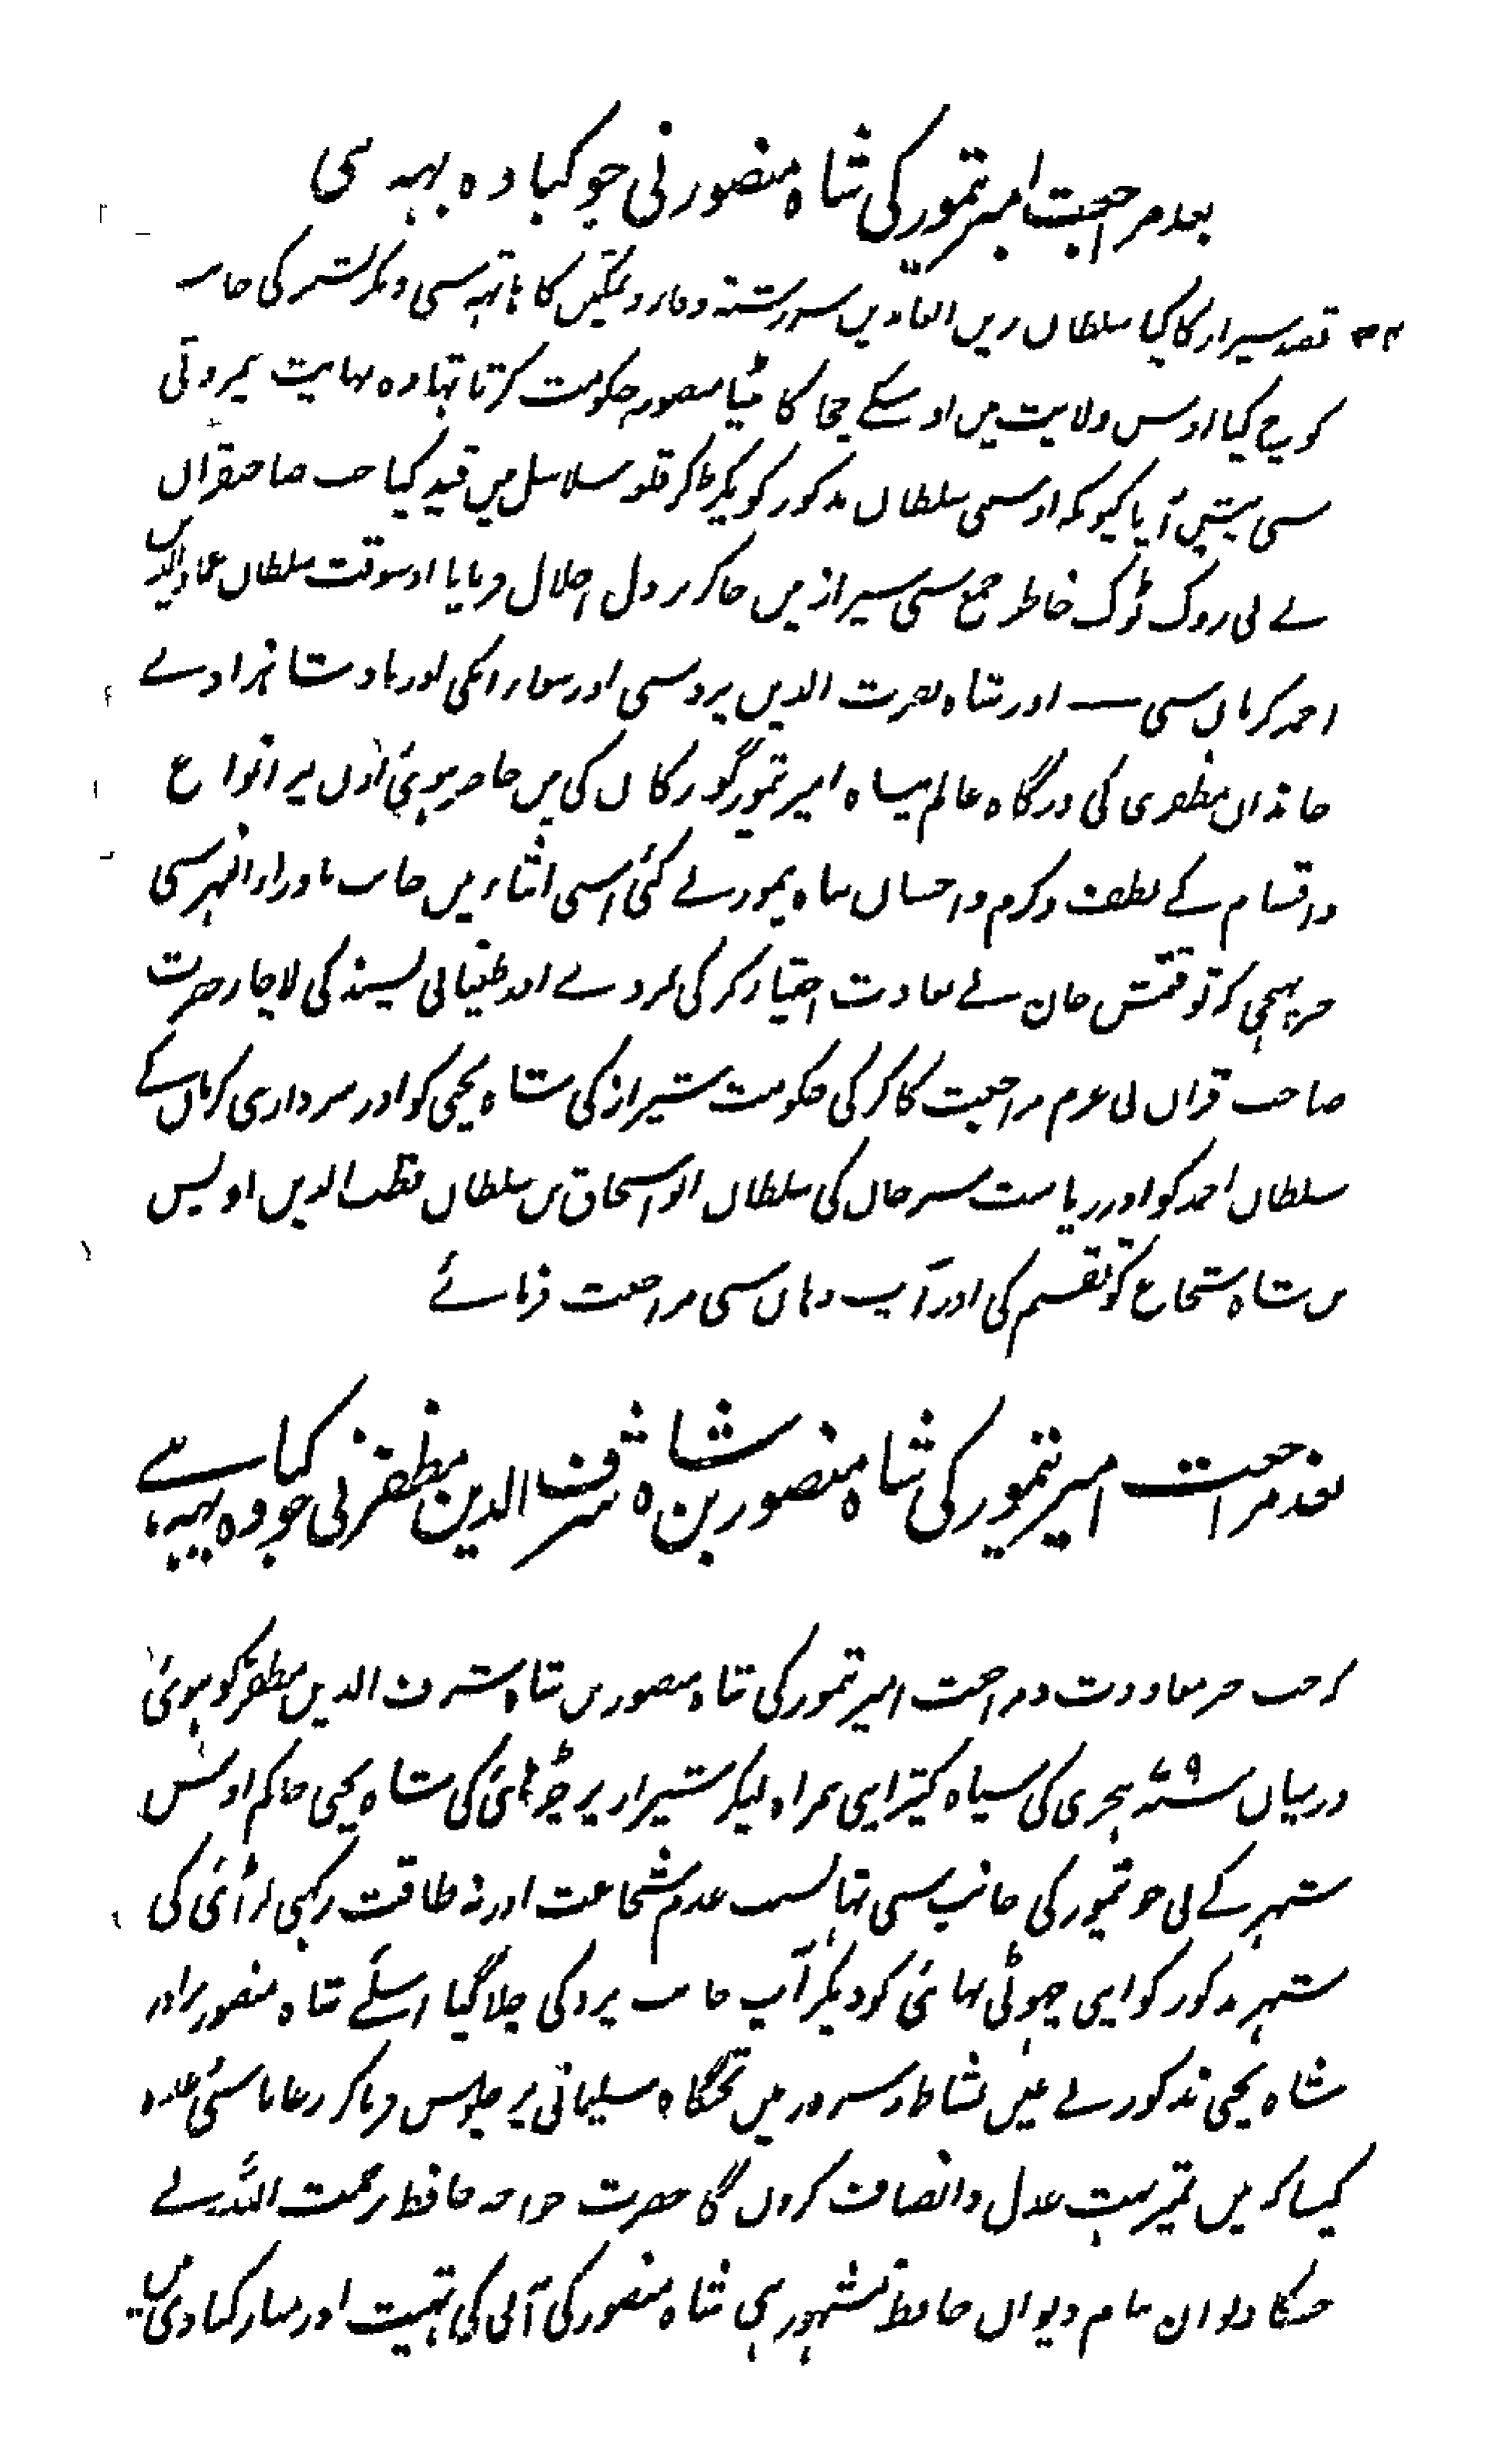 بعد مراجعت امیر تیمور کی شاہ منصور نی جو کیا وہ یہہ سی
قصد سیراز کا کیا سلطان زین العابدین سررشتہ وقار و تمکین کا ہاتہہ سی دیکر لشتر کی جانب
کوچ کیا اوس ولایت میں اوسکے چچا کا بیٹا منصور حکومت کرتا تہا وہ نہایت بیمروتی
سی پیش آیا کیونکہ اوسی سلطان مذکور کو پکڑ کر قلعہ سلاسل میں قید کیا جب صاحبقران
نے بی روک ٹوک خاطر جمع سی سیراز میں جا کر نزول اجلال فرمایا اوسوقت سلطان عماد الدین
احمد کرمان سی — اور شاہ نصرت الدین یزد سی اور سوا انکی اور بادشاہزادے
خاندان مظفری کی درگاہ عالم پناہ امیر تیمور گورکان کی میں حاضر ہوئی اون پر انواع
و اقسام کے لطف و کرم و احسان شاہ تیمور نے کئی اسی اثناء میں جانب ماوراء النہر سی
خبر پہچی کہ توقتمش خان نے بغاوت اختیار کر کی تمرد نے اور طغیانی پسند کی لاچار حضرت
صاحب قران نی عزم مراجعت کا کر کی حکومت شیراز کی شاہ یحیی کو اور سرداری کرمان کے
سلطان احمد کو اور ریاست سرجان کی سلطان ابو اسحاق بن سلطان قطب الدین اویس
بن شاہ شجاع کو تقسیم کی اور آپ وہاں سی مراجعت فرمائے
بعد مراجعت امیر تیمور کی شاہ منصور بن شاہ شرف الدین مظفر نی جو وہ یہہ کیا ہے
کہ جب خبر معاودت و مراجعت امیر تیمور کی شاہ منصور بن شاہ شرف الدین مظفر کو ہوئی
درمیان سنہ ۷۹ ہجری کی سپاہ کثیر اپنی ہمراہ لیکر شیراز پر چڑھائی کی شاہ یحیی حاکم اوس
شہر کے نی جو تیمور کی جانب سی تہا بسبب عدم شجاعت اور نہ طاقت رکہنی لڑائی کی
شہر مذکور کو اپنی چہوٹی بہائی کو دیکر آپ جانب یزد کی چلا گیا اسلئے شاہ منصور برادر
شاہ یحیی مذکور نے عین نشاط و سرور میں تختگاہ سلیمانی پر جلوس فرما کر رعایا سی وعدہ
کیا کہ میں تمپر بہت عدل و انصاف کروں گا حضرت خواجہ حافظ رحمت اللہ نے
جسکا دیوان بنام دیوان حافظ مشہور ہی شاہ منصور کی آنی کی تہنیت اور مبارکبادی میں